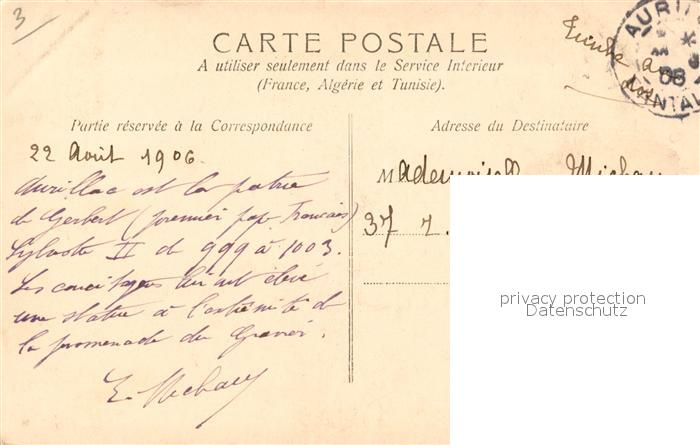 3
CARTE POSTALE
A utiliser seulement dans le Service Interieur
(France, Algérie et Tunisie).
AURILLAC
06
CANTAL
Partie réservée à la Correspondance
Adresse du Destinataire
22 Août 1906.
Mademoiselle Michau
37 r.
Aurillac est la patrie
de Gerbert (premier pape Français)
Sylvestre II de 999 à 1003.
Les concitoyens lui ont élevé
une statue à l'extrémité de
la promenade du Gravier.
E. Michau
privacy protection
Datenschutz